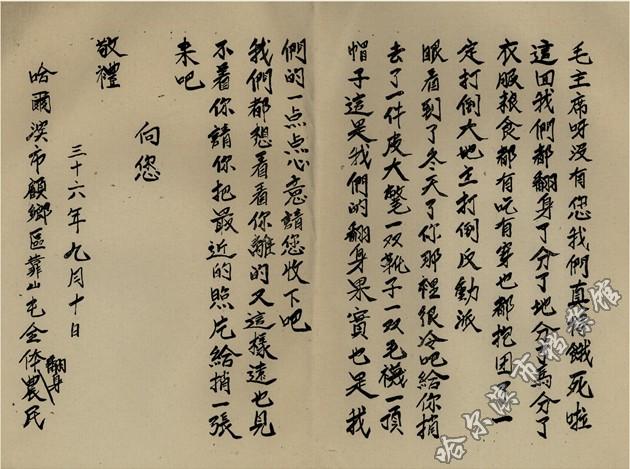 毛主席呀没有您我們直得餓死啦
這回我們都翻身了分了地分了馬分了
衣服粮食都有吃有穿也都抱团了一
定打倒大地主打倒反動派
眼看到了冬天了你那裡很冷吧給你捎
去了一件皮大氅一双靴子一双毛襪一頂
帽子這是我們的翻身果實也是我
們的一点点心意請您收下吧
我們都想看看你離的又這樣遠也見
不着你請你把最近的照片給捎一張
来吧
向您
敬禮
三十六年九月十日
哈爾濱市顧鄉區靠山屯全体翻身農民
哈尔滨市档案馆